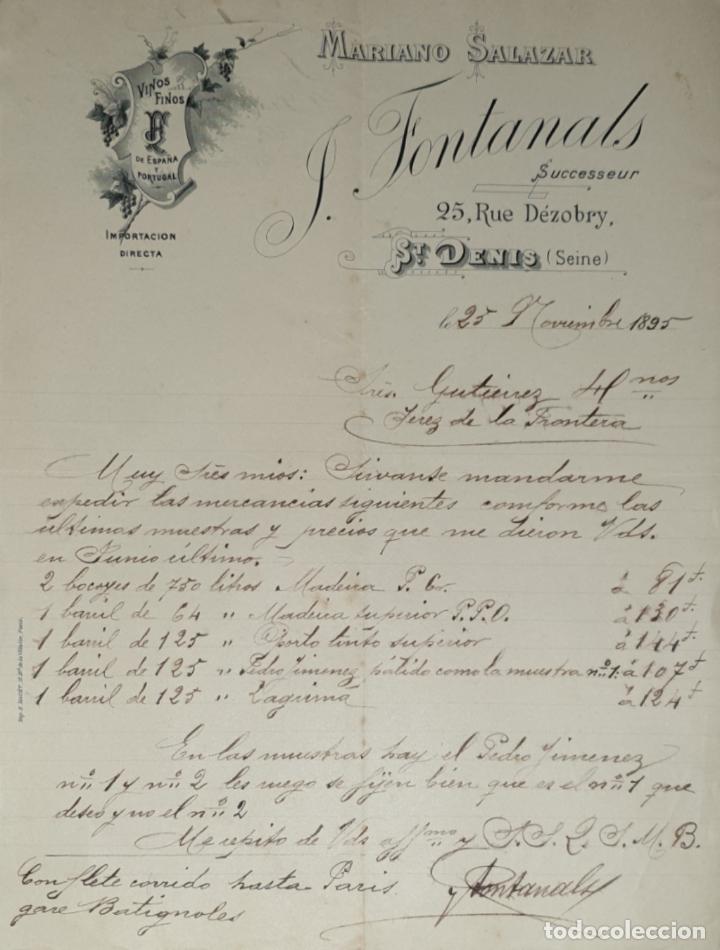 MARIANO SALAZAR
VINOS
FINOS
DE ESPAÑA
Y
PORTUGAL
IMPORTACION
DIRECTA
J. Fontanals
Successeur
25, Rue Dézobry,
ST DENIS (Seine)
le 25 Noviembre 1895
Sres. Gutierrez Hnos
Jerez de la Frontera
Muy Sres mios: Sirvanse mandarme
expedir las mercancias siguientes conforme las
últimas muestras y precios que me dieron Vds.
en Junio último.
2 bocoyes de 750 litros Madeira P. Cr. à 81 f.
1 barril de 64 " Madeira superior P.P.O. á 130 f.
1 barril de 125 " Porto tinto superior á 144 f.
1 barril de 125 " Pedro Jimenez pálido como la muestra nº 1. á 107 f
1 barril de 125 " Lagrima á 124 f
En las muestras hay el Pedro Jimenez
nº 1 y nº 2 les ruego se fijen bien que es el nº 1 que
deseo y no el nº 2
Me repito de Vds affmo y S. S. Q. S. M. B.
Con flete corrido hasta Paris
gare Batignoles
J Fontanals
todocoleccion